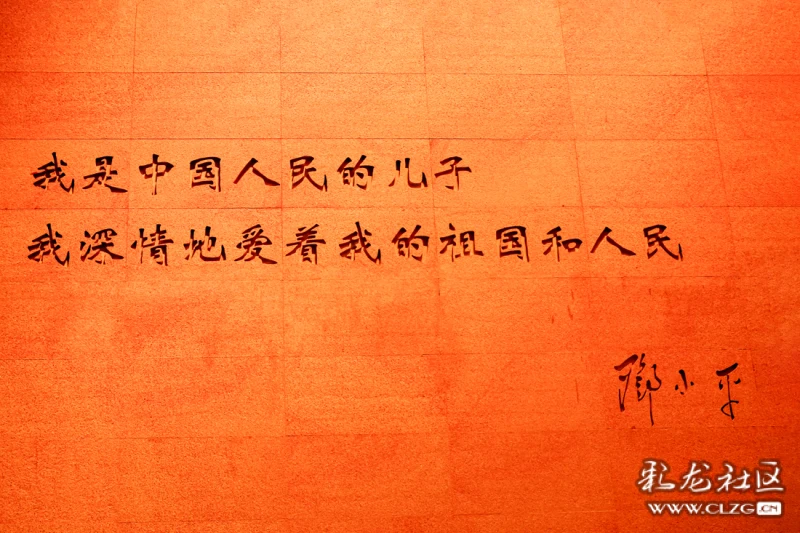 我是中国人民的儿子
我深情地爱着我的祖国和人民
邓小平
彩龙社区
WWW.CLZG.CN